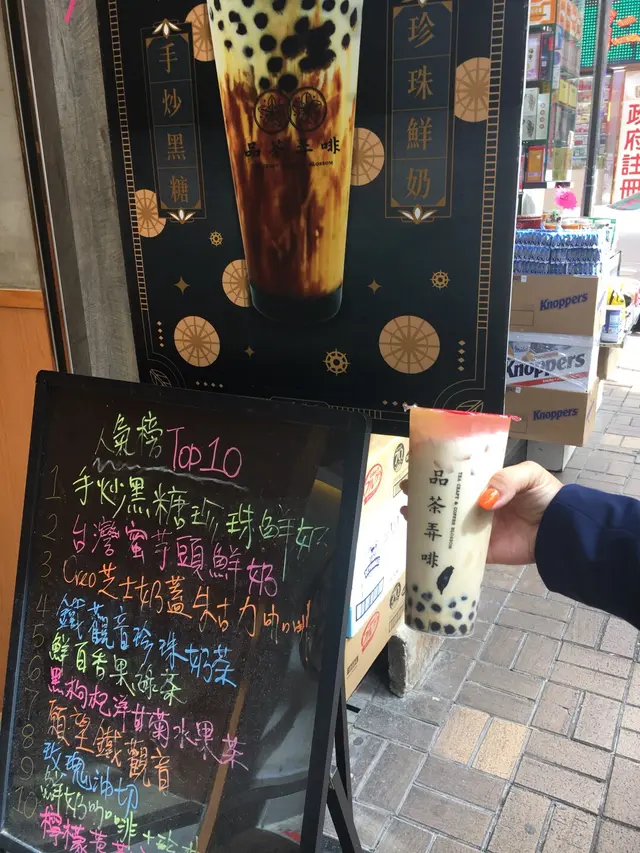 手炒黑糖
珍珠鮮奶
品茶弄啡
政府註冊
Knoppers
Knoppers
Knoppers
人氣榜 Top 10
1 手炒黑糖珍珠鮮奶
2 台灣蜜芋頭鮮奶
3 Oreo芝士奶蓋朱古力
4 鐵觀音珍珠奶茶
5 鮮百香果綠茶
6 黑枸杞洋甘菊水果茶
7 願望鐵觀音
8 玫瑰油切
9 鮮奶咖啡+珍珠
10 檸檬
品茶弄啡
TEA CRAFT & COFFEE BLOSSOM